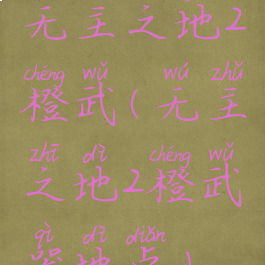 无主之地2
chéng wǔ wú zhǔ
橙武(无主
zhī dì chéng wǔ
之地2橙武
qì dì diǎn
器地点)